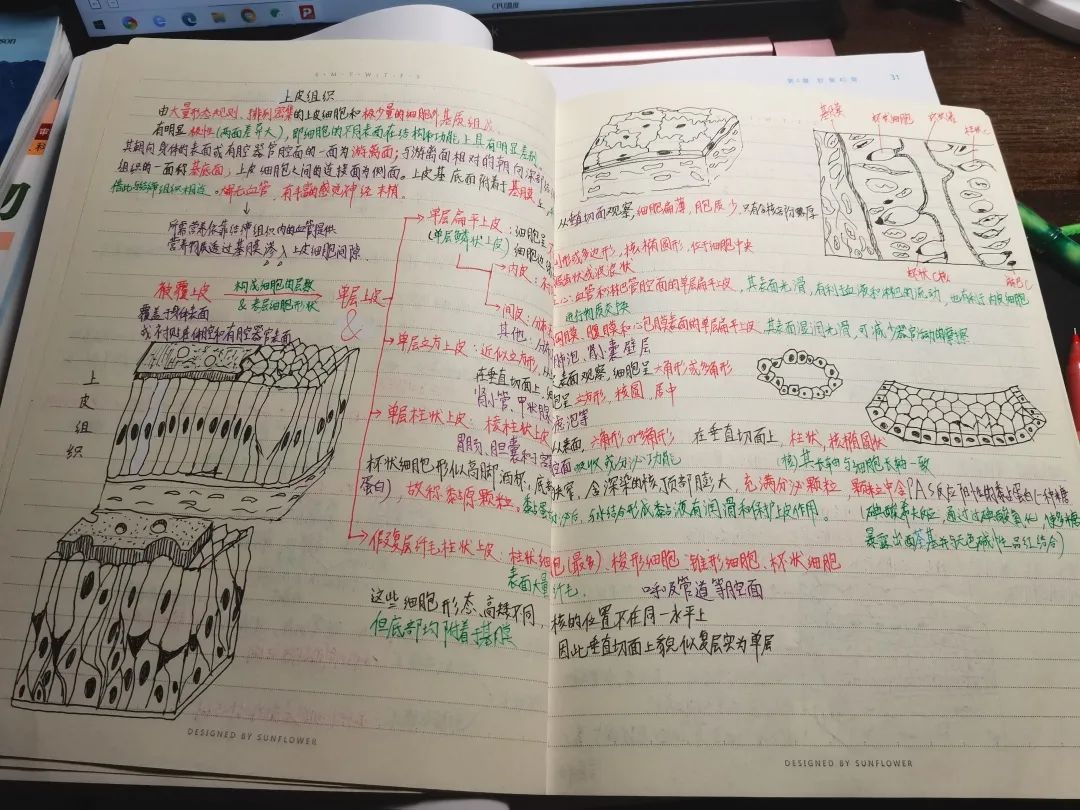 CPU温度
31
上皮组织
由大量形态规则、排列密集的上皮细胞和极少量的细胞外基质组成
有明显极性(两面差异大),即细胞的不同表面在结构和功能上具有明显差别
其朝向身体的表面或有腔器官腔面的一面为游离面;与游离面相对的朝向深部
组织的一面称基底面,上皮细胞之间的连接面为侧面。上皮基底面附着于基膜上,
借此与结缔组织相连。
所需营养依靠结缔组织内的血管提供
营养物质透过基膜渗入上皮细胞间隙.
被覆上皮
构成细胞的层数
& 表层细胞形状
单层上皮
&
覆盖于身体表面
或衬贴体腔和有腔器官表面
上皮组织
单层扁平上皮:细胞呈
(单层鳞状上皮)
内皮:
间皮:
其他:
单层立方上皮:近似立方形,
在垂直切面上,
肾小管、甲状腺
单层柱状上皮:棱柱状上皮
胃肠、胆囊和子宫
杯状细胞形似高脚酒杯,底部狭窄,含深染的核,顶部膨大,充满分泌颗粒,颗粒中含PAS反应阳性的
蛋白),故称黏原颗粒。
假复层纤毛柱状上皮:柱状细胞(最多)、梭形细胞、锥形细胞、杯状细胞
表面大量纤毛.
呼吸管道等腔面
这些细胞形态、高矮不同,
但底部均附着于基膜
核的位置不在同一水平上
因此垂直切面上貌似复层实为单层
基膜
杯状细胞
从垂直切面观察,细胞扁薄,胞质少,只有含核部分略厚
则形或多边形,核椭圆形,位于细胞中央
锯齿状或波浪状
心、血管和淋巴管腔面的单层扁平上皮,其表面光滑,有利于血液和淋巴的流动,也有利于内皮细胞
进行物质交换
胸膜、腹膜和心包膜表面的单层扁平上皮,其表面湿润光滑,可减少器官活动的摩擦
肺泡、肾小囊壁层
表面观察,细胞呈六角形或多角形
呈立方形,核圆,居中
从表面,六角形or多角形
在垂直切面上,柱状,核椭圆状
吸收或分泌功能
(核)其长轴与细胞长轴一致
与水结合形成黏液有润滑和保护上皮作用。
DESIGNED BY SUNFLOWER
DESIGNED BY SUNFLOWER